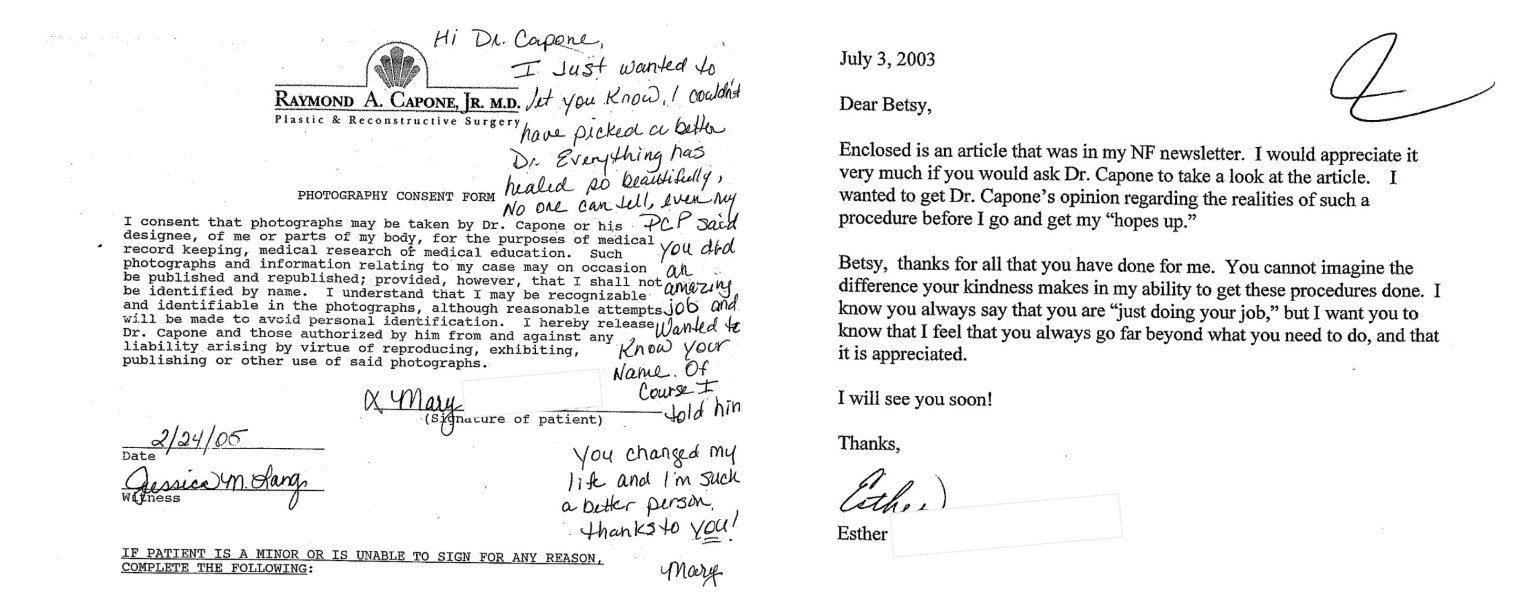 Hi Dr. Capone,
I Just wanted to
let you Know, I couldn't
have picked a better
Dr. Everything has
healed so beautifully,
No one can tell, even my
PCP said
you did
an
amazing
job and
Wanted to
Know your
Name. Of
Course I
told him
You changed my
life and I'm such
a better person.
thanks to you!
Mary
RAYMOND A. CAPONE, JR. M.D.
Plastic & Reconstructive Surgery
PHOTOGRAPHY CONSENT FORM
I consent that photographs may be taken by Dr. Capone or his
designee, of me or parts of my body, for the purposes of medical
record keeping, medical research or medical education. Such
photographs and information relating to my case may on occasion
be published and republished; provided, however, that I shall not
be identified by name. I understand that I may be recognizable
and identifiable in the photographs, although reasonable attempts
will be made to avoid personal identification. I hereby release
Dr. Capone and those authorized by him from and against any
liability arising by virtue of reproducing, exhibiting,
publishing or other use of said photographs.
X Mary
(Signature of patient)
2/24/05
Date
Jessica M. Lang
Witness
IF PATIENT IS A MINOR OR IS UNABLE TO SIGN FOR ANY REASON,
COMPLETE THE FOLLOWING:
July 3, 2003
Dear Betsy,
Enclosed is an article that was in my NF newsletter. I would appreciate it
very much if you would ask Dr. Capone to take a look at the article. I
wanted to get Dr. Capone's opinion regarding the realities of such a
procedure before I go and get my “hopes up.”
Betsy, thanks for all that you have done for me. You cannot imagine the
difference your kindness makes in my ability to get these procedures done. I
know you always say that you are “just doing your job,” but I want you to
know that I feel that you always go far beyond what you need to do, and that
it is appreciated.
I will see you soon!
Thanks,
Esther
Esther